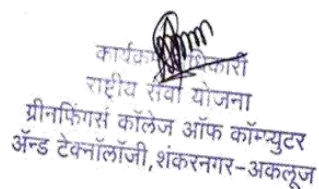 कार्यक्रम अधिकारी
राष्ट्रीय सेवा योजना
ग्रीनफिंगर्स कॉलेज ऑफ कॉम्प्युटर
ॲन्ड टेक्नॉलॉजी, शंकरनगर-अकलूज